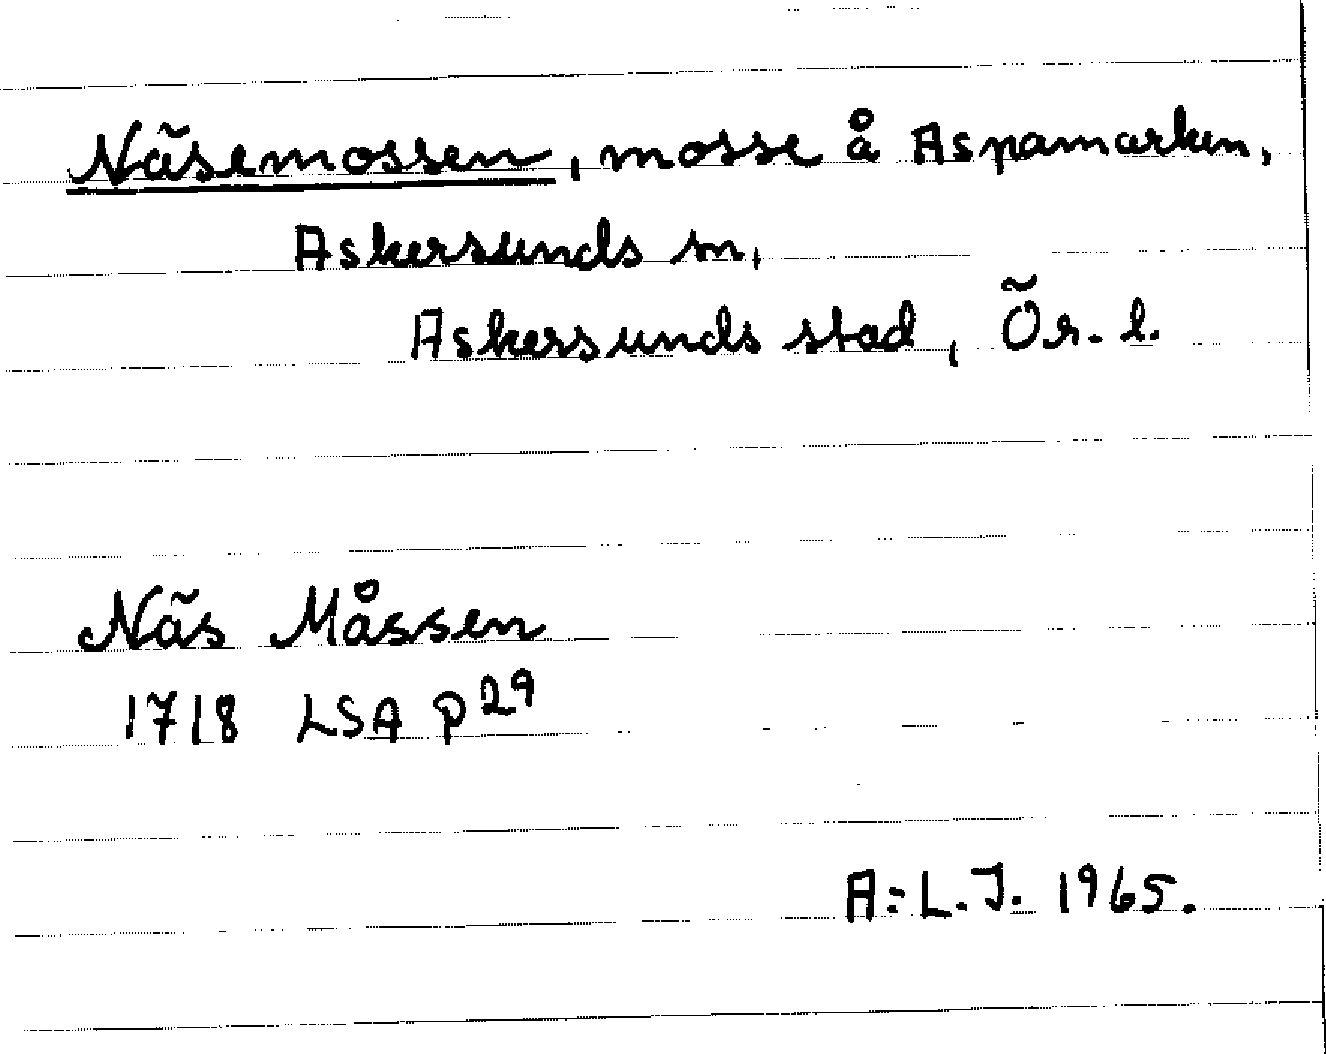 Näsemossen, mosse å Aspamarken,
Askersunds sn,
Askersunds stad, Ör. l.
Näs Måssen
1718 LSA P 29
A:L.J. 1965.